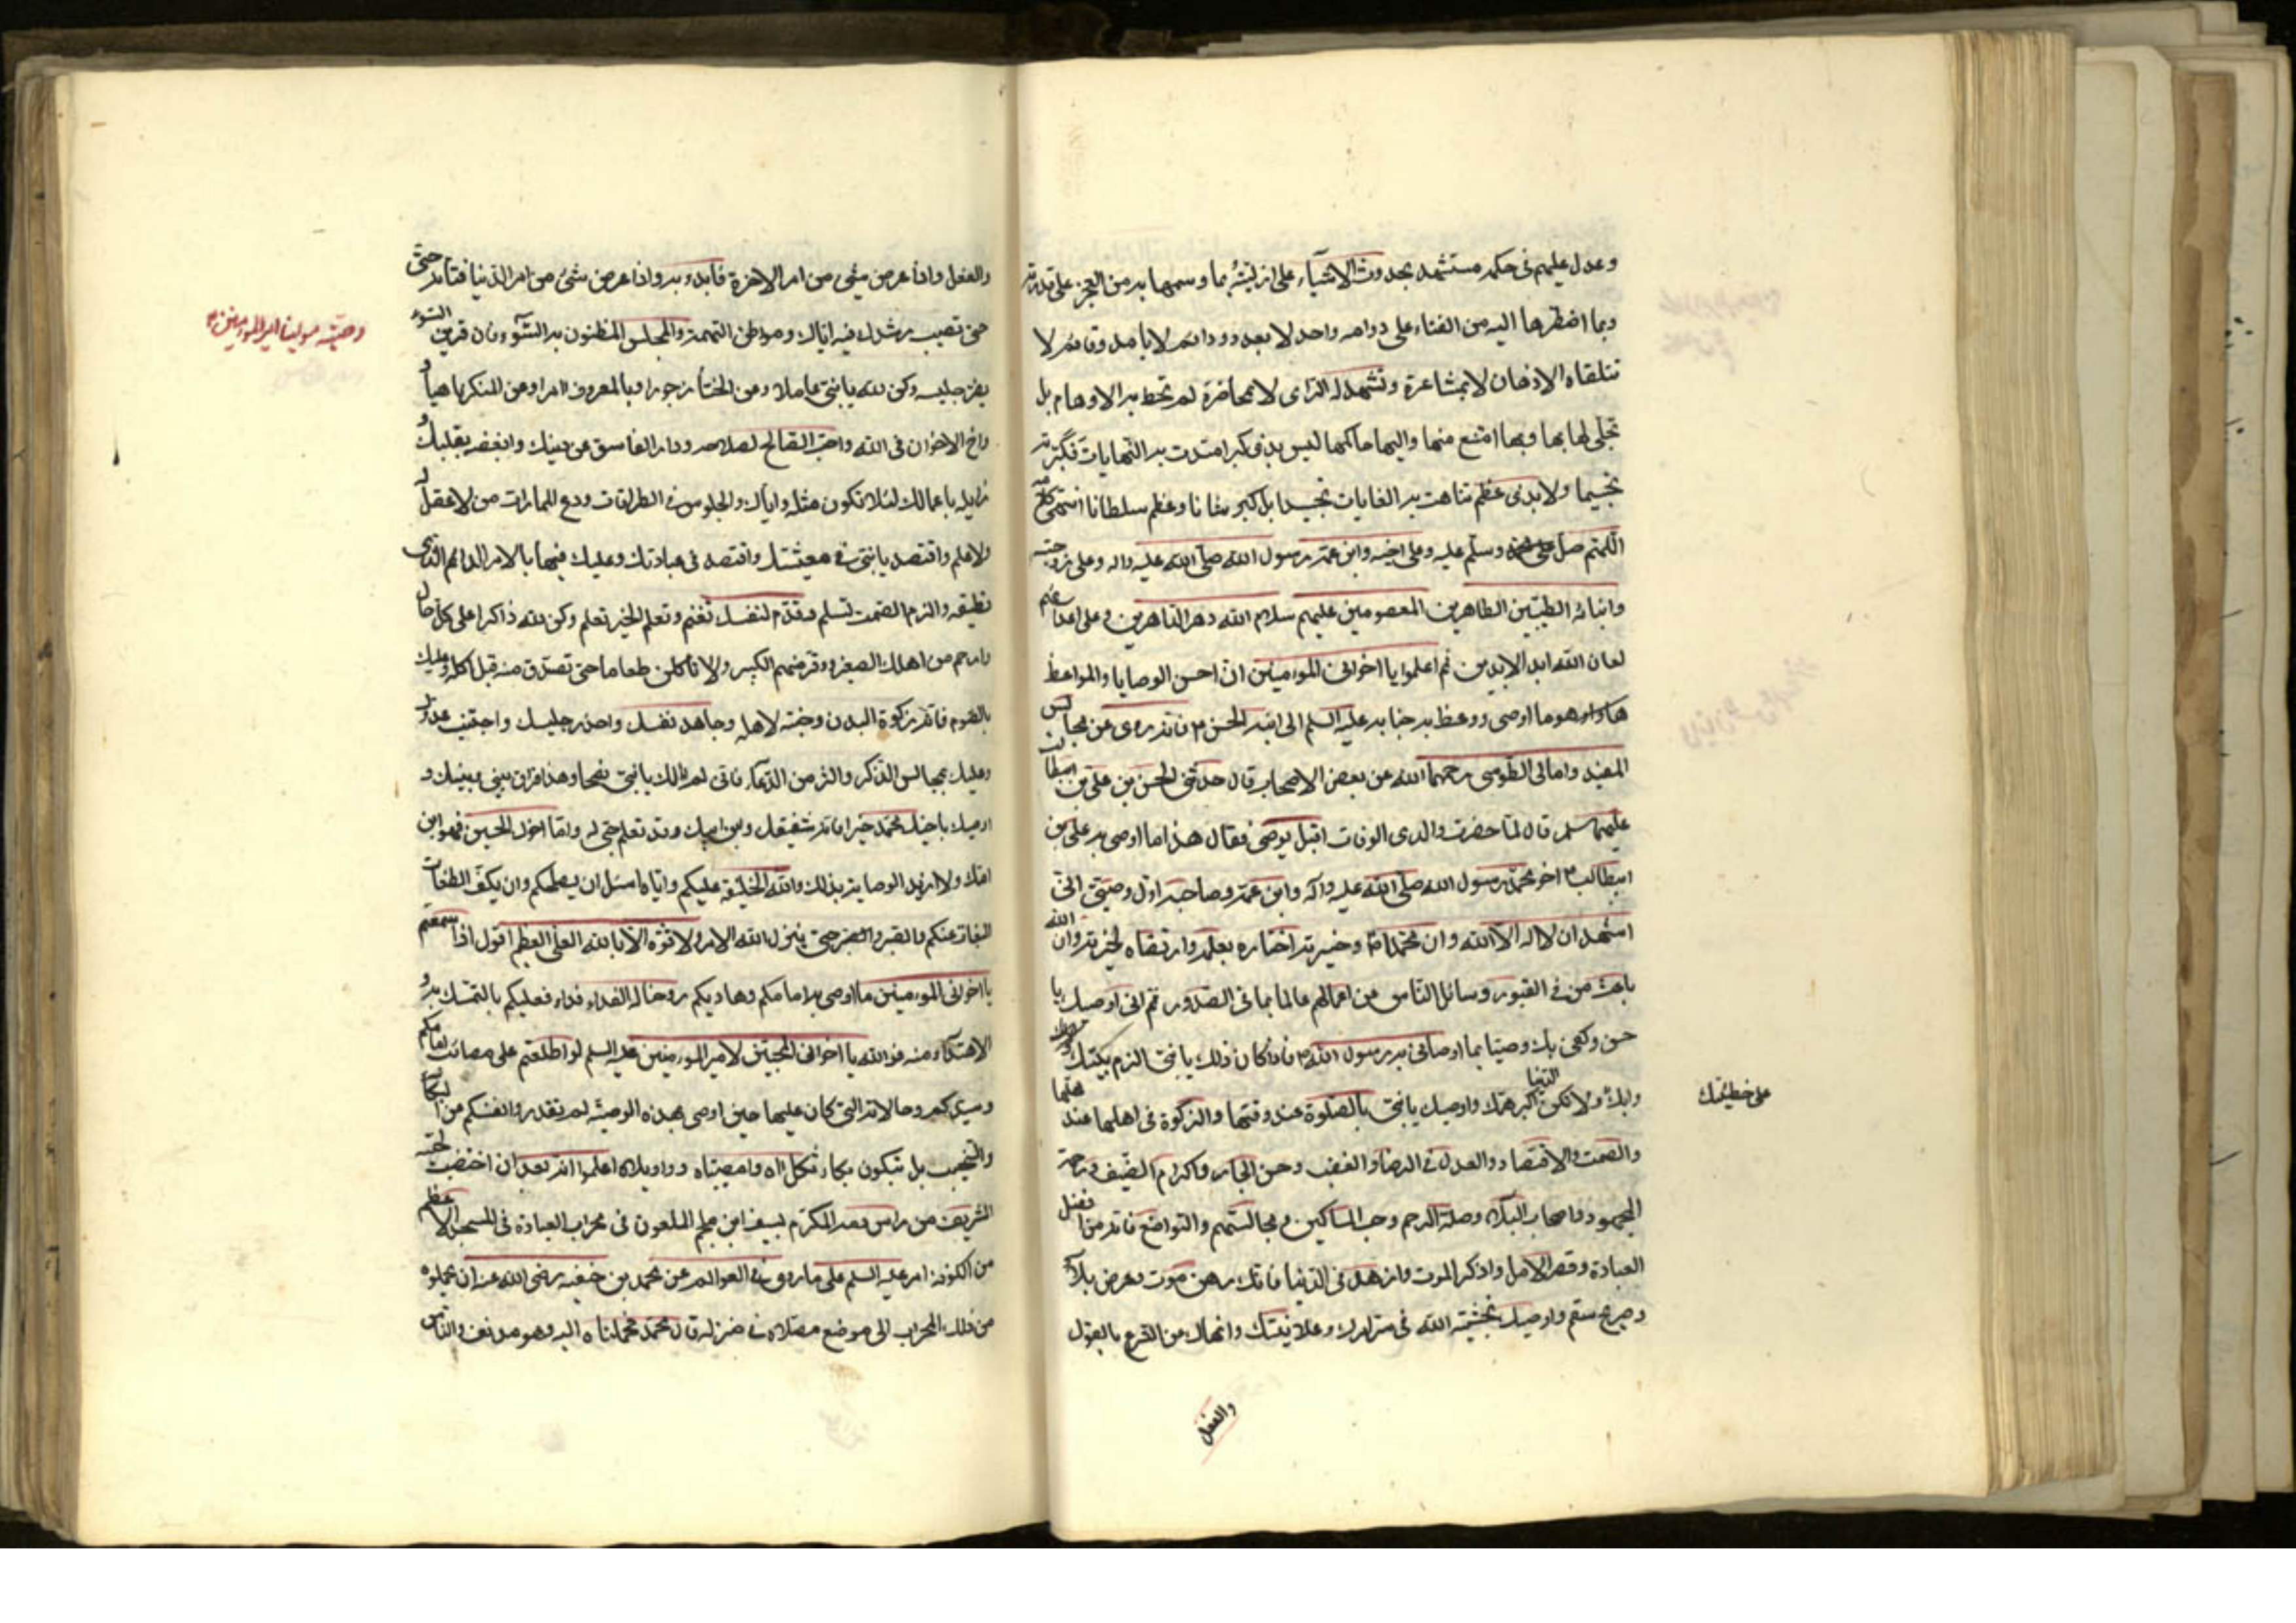 وعدل عليهم فى حكمه مستشهد بحدوث الاشياء على ازليته بما وسمها به من العجز على قدرته
وبما اضطرها اليه من الفناء على دوامه واحد لا بعدد ودائم لا بامد وقائم لا
تتلقاه الاذهان لا بمشاعرة وتشهد له المراى لا بمحاضرة لم تحط به الاوهام بل
تجلى لها بها وبها امتنع منها واليها حاكمها ليس بذى كبر امتدت به النهايات فكبرته
تجسيما ولا بذى عظم تناهت به الغايات تجسيدا بل كبر شانا وعظم سلطانا انتهى كلامه
اللهم صل وسلم عليه وعلى اخيه وابن عمه رسول الله صلى الله عليه واله وعلى زوجته
وابنائه الطيبين الطاهرين المعصومين عليهم سلام الله دهر الداهرين وعلى اعدائهم
لعان الله ابد الابدين ثم اعلموا يا اخوانى المؤمنين ان احسن الوصايا والمواعظ
هو ما اوصى ووعظ به جنابه عليه السلم الى ابنه الحسن ع فانه روى عن مجالس
المفيد وامالى الطوسى رحمهما الله عن بعض الاصحاب قال حدثنى الحسن بن على بن ابيطالب
عليهما سلم قال لما حضرت والدى الوفات اقبل يوصى فقال هذا ما اوصى به على بن
ابيطالب ع اخو محمد رسول الله صلى الله عليه وآله وابن عمه وصاحبه اول وصيتى انى
اشهد ان لا اله الا الله وان محمدا وخيرته اختاره بعلمه وارتضاه لخيرته وان الله
باعث من فى القبور وسائل الناس عن اعمالهم عالما بما فى الصدور ثم انى اوصيك يا
حسن وكفى بك وصيا بما اوصانى به رسول الله ص فاذا كان ذلك يا بنى الزم بيتك
وابك ولا تكن الدنيا اكبر همك واوصيك يا بنى بالصلوة عند وقتها والزكوة فى اهلها عند محلها
على خطيئتك
والصمت والاقتصاد والعدل فى الرضا والغضب وحسن الجار واكرام الضيف ورحمة
المجهود واصحاب البلاء وصلة الرحم وحب المساكين ومجالستهم والتواضع فانه من افضل
العبادة وقصر الامل واذكر الموت وازهد فى الدنيا فانك رهن موت وعرض بلاء
وصريع سقم واوصيك بخشية الله فى سر امرك وعلانيتك وانهاك عن التسرع بالقول
والفعل
والفعل واذا عرض شئ من امر الاخرة فابدء به واذا عرض شئ من امر الدنيا فتانه حتى
حتى تصيب رشدك فيه اياك ومواطن التهمة والمجلس المظنون به السوء فان قرين السوء
وصيته مولينا امير المؤمنين ع
يغر جليسه وكن لله يا بنى عاملا وعن الخنا زجورا وبالمعروف امرا وعن المنكر ناهيا و
واخ الاخوان فى الله واحب الصالح لصلاحه ودار الفاسق عن دينك وابغضه بقلبك و
زايله باعمالك لئلا تكون مثله واياك والجلوس فى الطرقات ودع المماراة من لا عقل له
ولا علم واقتصد يا بنى فى معيشتك واقتصد فى عبادتك وعليك فيها بالامر الدائم الذى
تطيقه والزم الصمت تسلم وقدم لنفسك تغنم وتعلم الخير تعلم وكن لله ذاكرا على كل حال
وارحم من اهلك الصغير ووقر منهم الكبير ولا تاكلن طعاما حتى تصدق منه قبل اكله وعليك
بالصوم فانه زكوة البدن وجنة لاهله وجاهد نفسك واحذر جليسك واجتنب عدوك
وعليك بمجالس الذكر واكثر من الدعاء فانى لم الك يا بنى نصحا وهذا فراق بينى وبينك و
اوصيك باخيك محمد خيرا فانه شقيقك وابن ابيك وقد تعلم حبى له واما اخوك الحسين فهو ابن
امك ولا ازيد الوصاية بذلك والله الخليفة عليكم واياه اسئل ان يصلحكم وان يكف الطغات
البغاة عنكم والصبر والصبر حتى ينزل الله الامر ولا قوة الا بالله العلى العظيم اقول اذا سمعتم
يا اخوانى المؤمنين ما اوصى به امامكم وهاديكم روحنا له الفداء فداء فعليكم بالتمسك به و
الاهتداء منه فوالله يا اخوانى المحبين لامير المؤمنين عليه السلم لو اطلعتم على مصائب امامكم
وسيدكم وحالاته التى كان عليها حين اوصى بهذه الوصية لم تقدروا انفسكم من البكاء
والنحيب بل تبكون بكاء ثكلى اه وامصيبتاه وواويلاه اعلموا انه بعد ان اختضبت لحيته
الشريف من راس المكرم بسيف ابن ملجم الملعون فى محراب العبادة فى المسجد الاعظم
من الكوفة امر عليه السلم على ما روى فى العوالم عن محمد بن حنفيه رضى الله عنه ان يحملوه
من ذلك المحراب الى موضع مصلاه فى منزله قال محمد فحملناه اليه وهو مدنف والناس